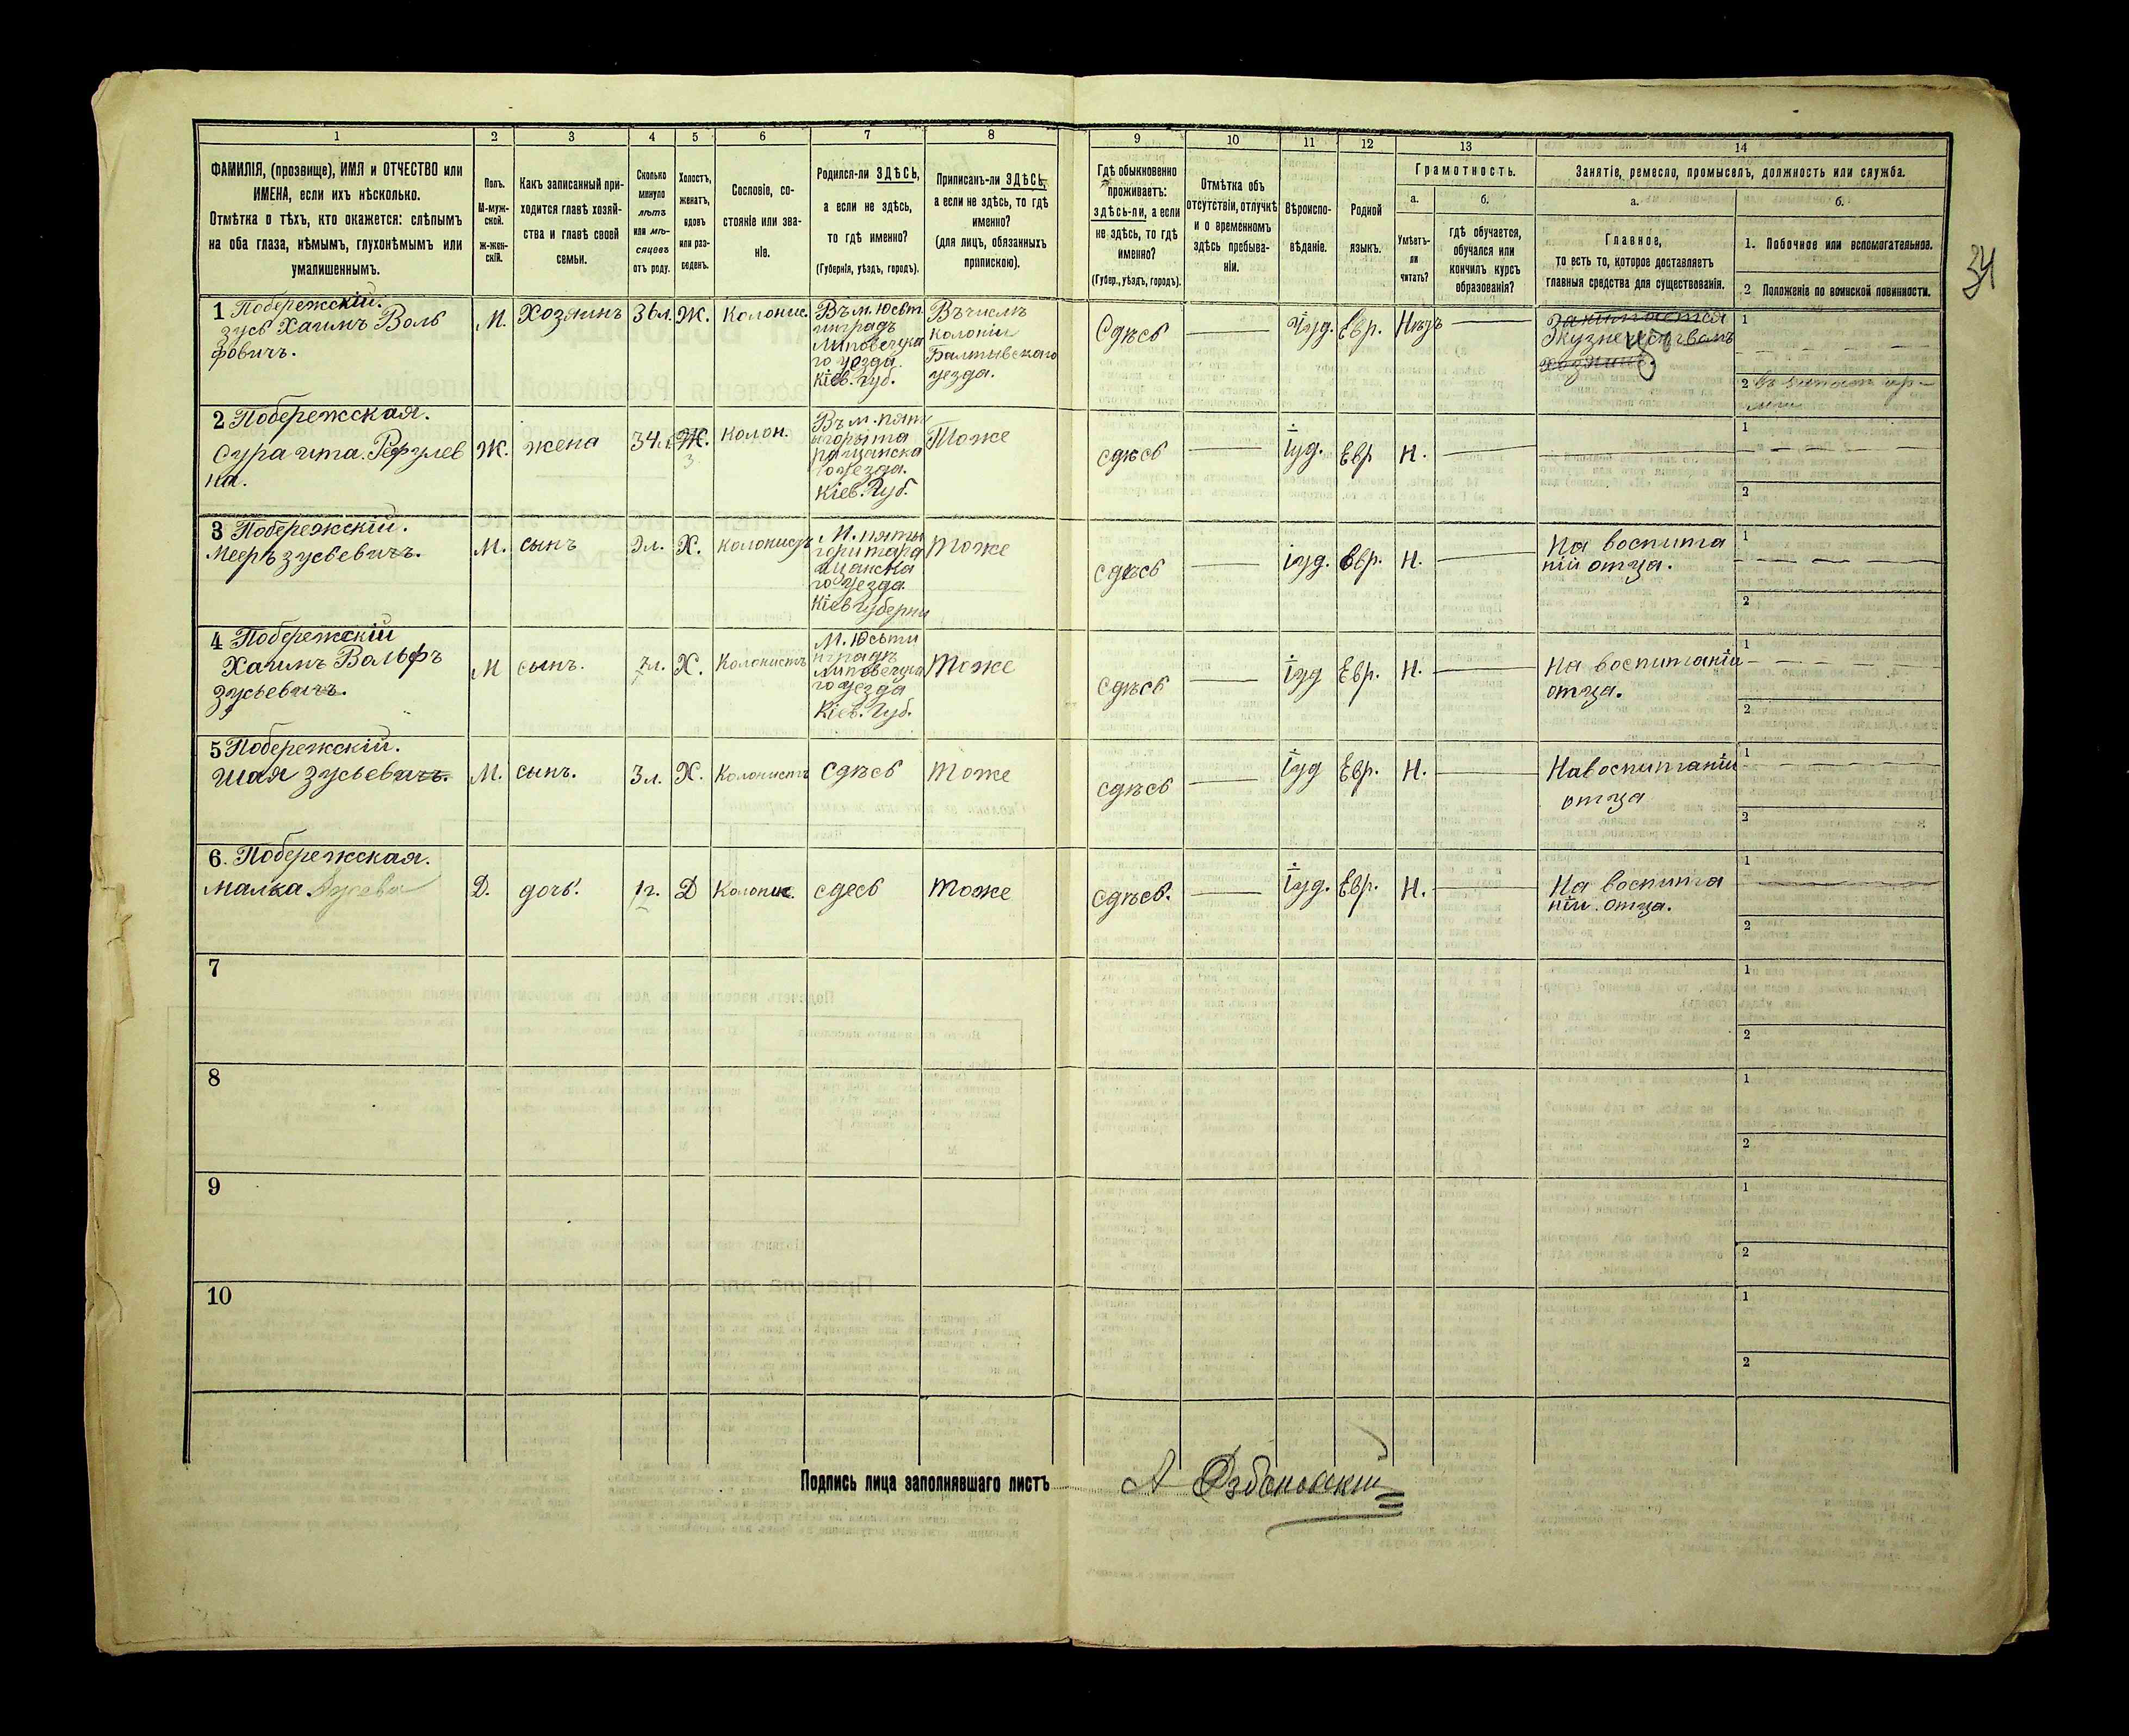 1
2
3
4
5
6
7
8
ФАМИЛІЯ, (прозвище), ИМЯ и ОТЧЕСТВО или
ИМЕНА, если ихъ нѣсколько.
Отмѣтка о тѣхъ, кто окажется: слѣпымъ
на оба глаза, нѣмымъ, глухонѣмымъ или
умалишеннымъ.
Полъ.
М-муж-
ской.
Ж-жен-
скій.
Какъ записанный при-
ходится главѣ хозяй-
ства и главѣ своей
семьи.
Сколько
минуло
лѣтъ
или мѣ-
сяцевъ
отъ роду.
Холостъ,
женатъ,
вдовъ
или раз-
веденъ.
Сословіе, со-
стояніе или зва-
ніе.
Родился-ли ЗДѢСЬ,
а если не здѣсь,
то гдѣ именно?
(Губернія, уѣздъ, городъ).
Приписанъ-ли ЗДѢСЬ,
а если не здѣсь, то гдѣ
именно?
(для лицъ, обязанныхъ
припискою).
9
10
11
12
13
14
Гдѣ обыкновенно
проживаетъ:
здѣсь-ли, а если
не здѣсь, то гдѣ
именно?
(Губер., уѣздъ, городъ).
Отмѣтка объ
отсутствіи, отлучкѣ
и о временномъ
здѣсь пребыва-
ніи.
Вѣроиспо-
вѣданіе.
Родной
языкъ.
Грамотность.
а.
Умѣетъ-
ли
читать?
б.
гдѣ обучается,
обучался или
кончилъ курсъ
образованія?
Занятіе, ремесло, промыселъ, должность или служба.
а.
Главное,
то есть то, которое доставляетъ
главныя средства для существованія.
б.
1. Побочное или вспомогательное.
2 Положеніе по воинской повинности.
34
1 Побережскій.
зусь Хаимъ Воль
фовичъ.
М.
Хозяинъ
36л.
Ж.
Колонис.
Въ м. Юсѣт
инградъ
Липовецка
го уезда
Кіев. Губ.
Въ числѣ
колоніи
Балтывскаго
уезда.
Сдѣсь
Іуд.
Евр.
Нѣтъ
Занимается
1
2
2 Побережская.
Сура ита
на.
Ж.
жена
34л.
Ж.
3
Колон.
Въ м. пяти
го уезда.
Кіев. Губ.
Тоже
сдѣсь
іуд.
Евр
Н.
1
2
3 Побережскій.
Мееръ зусьевичъ.
М.
сынъ
9л.
Х.
колонистъ
М. пяты
го уезда
Кіев Губерни
Тоже
сдѣсь
іуд.
Евр.
Н.
На воспита
ніи отца.
1
2
4 Побережскій
Хаимъ Вольфъ
зусьевичъ.
М
сынъ.
7л.
Х.
Колонистъ
М. Юсѣти
нградъ
Липовецка
го уезда
Кіев. Губ.
Тоже
сдѣсь
іуд
Евр.
Н.
На воспитаніи
отца.
1
2
5 Побережскій.
Шая зусьевичъ.
М.
сынъ.
3л.
Х.
Колонистъ
Сдѣсь
Тоже
сдѣсь
іуд
Евр.
Н.
На воспитаніи
отца
1
2
6. Побережская.
Малка Зусева
Д.
дочь.
1г.
Д
Колонис.
сдесь
Тоже
Сдѣсь.
іуд.
Евр.
Н.
На воспита
ніи отца.
1
2
7
1
2
8
1
2
9
1
2
10
1
2
Подпись лица заполнявшаго листъ